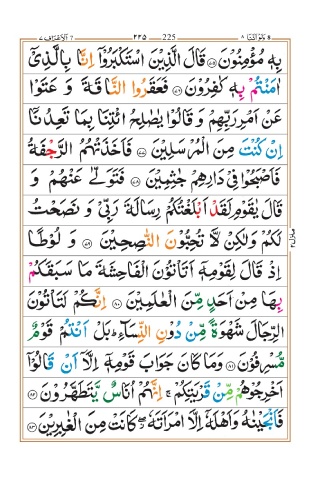 الاعراف ٧ ٢٢٥ 225 ولواننا ٨
بِهٖ مُؤْمِنُوْنَ ۝۷۵ قَالَ الَّذِيْنَ اسْتَكْبَرُوْۤا اِنَّا بِالَّذِيْۤ
اٰمَنْتُمْ بِهٖ كٰفِرُوْنَ ۝۷۶ فَعَقَرُوا النَّاقَةَ وَ عَتَوْا
عَنْ اَمْرِ رَبِّهِمْ وَ قَالُوْا يٰصٰلِحُ ائْتِنَا بِمَا تَعِدُنَاۤ
اِنْ كُنْتَ مِنَ الْمُرْسَلِيْنَ ۝۷۷ فَاَخَذَتْهُمُ الرَّجْفَةُ
فَاَصْبَحُوْا فِيْ دَارِهِمْ جٰثِمِيْنَ ۝۷۸ فَتَوَلّٰى عَنْهُمْ وَ
قَالَ يٰقَوْمِ لَقَدْ اَبْلَغْتُكُمْ رِسَالَةَ رَبِّيْ وَ نَصَحْتُ
لَكُمْ وَلٰكِنْ لَّا تُحِبُّوْنَ النّٰصِحِيْنَ ۝۷۹ وَ لُوْطًا
اِذْ قَالَ لِقَوْمِهٖۤ اَتَاْتُوْنَ الْفَاحِشَةَ مَا سَبَقَكُمْ
بِهَا مِنْ اَحَدٍ مِّنَ الْعٰلَمِيْنَ ۝۸۰ اِنَّكُمْ لَتَاْتُوْنَ
الرِّجَالَ شَهْوَةً مِّنْ دُوْنِ النِّسَآءِ ؕ بَلْ اَنْتُمْ قَوْمٌ
مُّسْرِفُوْنَ ۝۸۱ وَمَا كَانَ جَوَابَ قَوْمِهٖۤ اِلَّاۤ اَنْ قَالُوْۤا
اَخْرِجُوْهُمْ مِّنْ قَرْيَتِكُمْ ۚ اِنَّهُمْ اُنَاسٌ يَّتَطَهَّرُوْنَ ۝۸۲
فَاَنْجَيْنٰهُ وَاَهْلَهٗۤ اِلَّا امْرَاَتَهٗ ۖ كَانَتْ مِنَ الْغٰبِرِيْنَ ۝۸۳